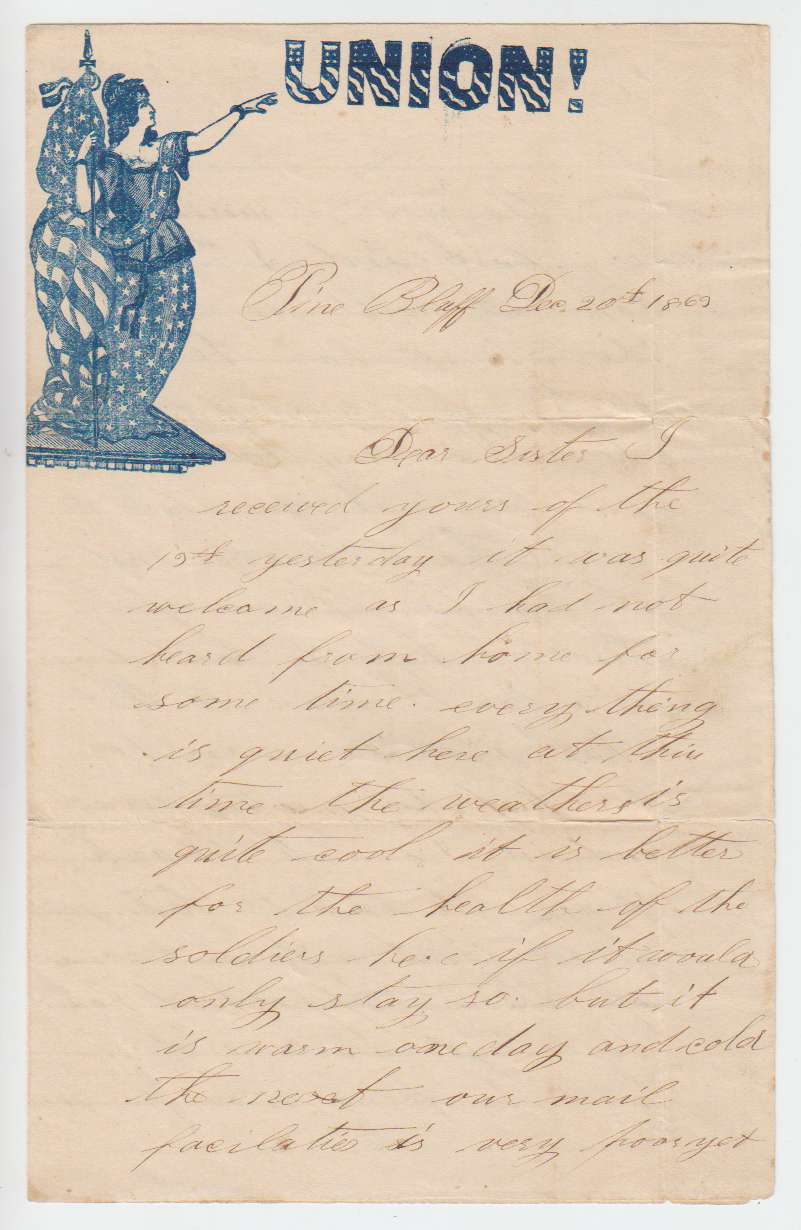 UNION!
Pine Bluff Dec. 20th 1863
Dear Sister I
received yours of the
19th yesterday it was quite
welcome as I had not
heard from home for
some time. every thing
is quiet here at this
time the weather is
quite cool it is better
for the health of the
soldiers here if it would
only stay so. but it
is warm one day and cold
the next our mail
facilaties is very poor yet